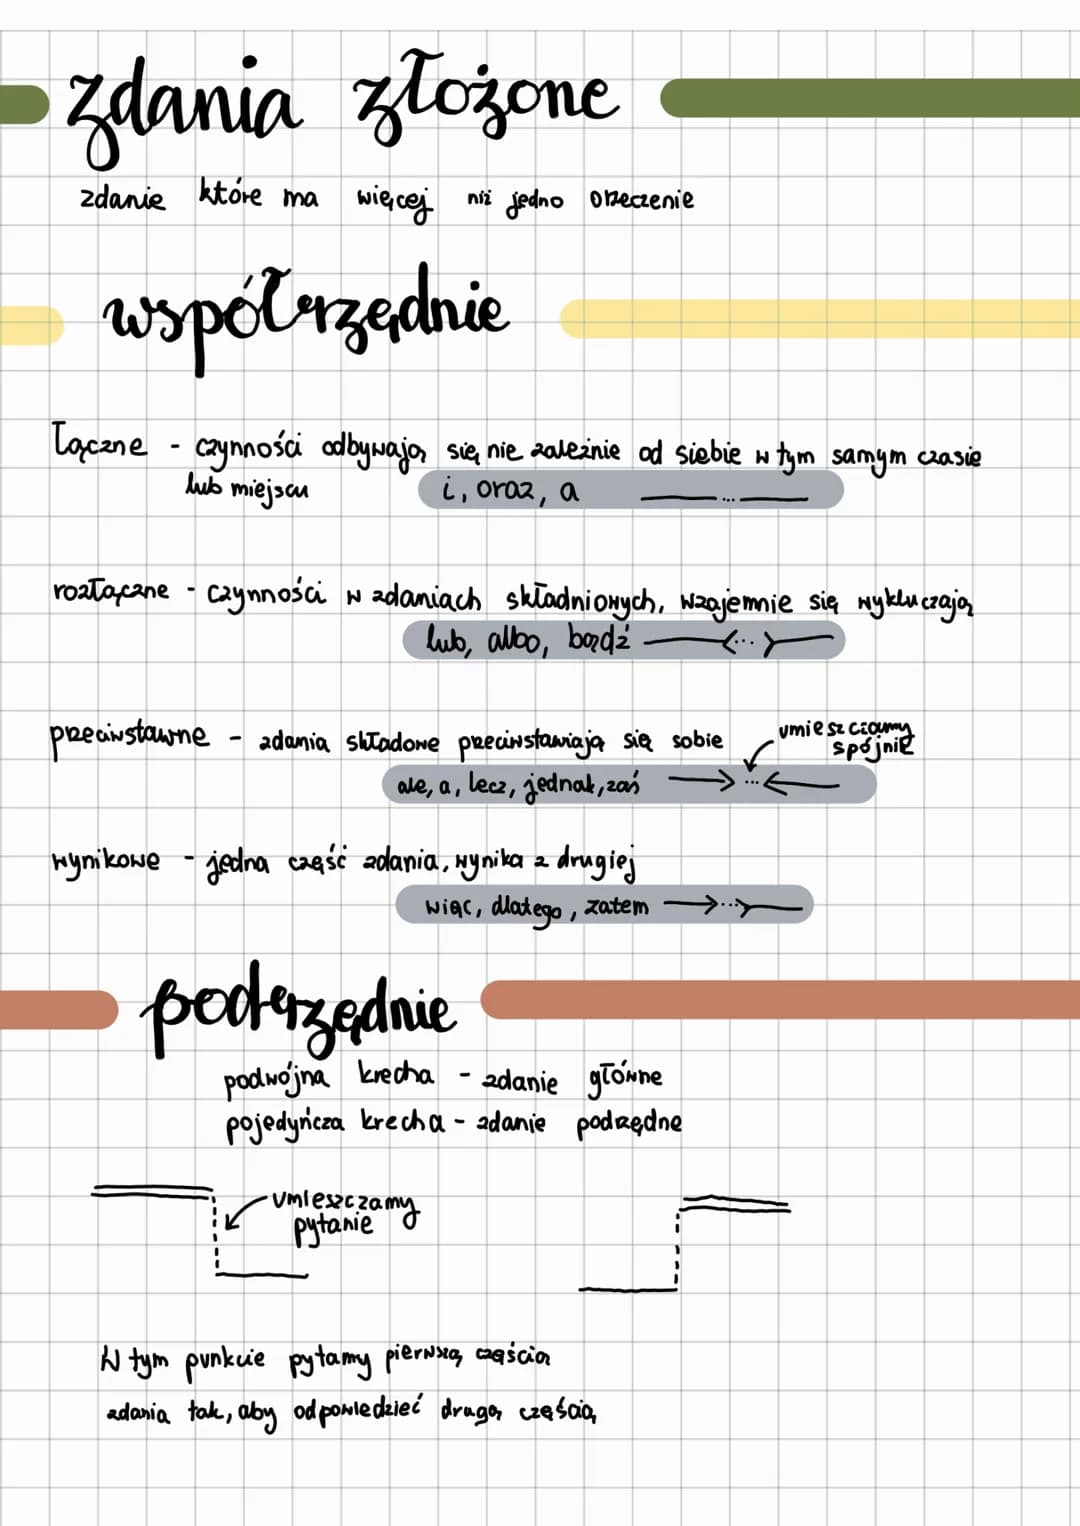 zdania złożone
zdanie które ma więcej niż jedno orzeczenie
współrzędnie
łączne - czynności odbywają się nie zależnie od siebie w tym samym czasie
lub miejscu
i, oraz, a ___...___
rozłączne - czynności w zdaniach składniowych, wzajemnie się wykluczają
lub, albo, bądź —<...>—
przeciwstawne - zdania składowe przeciwstawiają się sobie
umieszczamy
spójnik
ale, a, lecz, jednak, zaś —>...<—
wynikowe - jedna część zdania, wynika z drugiej
więc, dlatego, zatem —>...>—
podrzędnie
podwójna krecha - zdanie główne
pojedyńcza krecha - zdanie podrzędne
umieszczamy
pytanie
W tym punkcie pytamy pierwszą częścią
zdania tak, aby odpowiedzieć drugą częścią